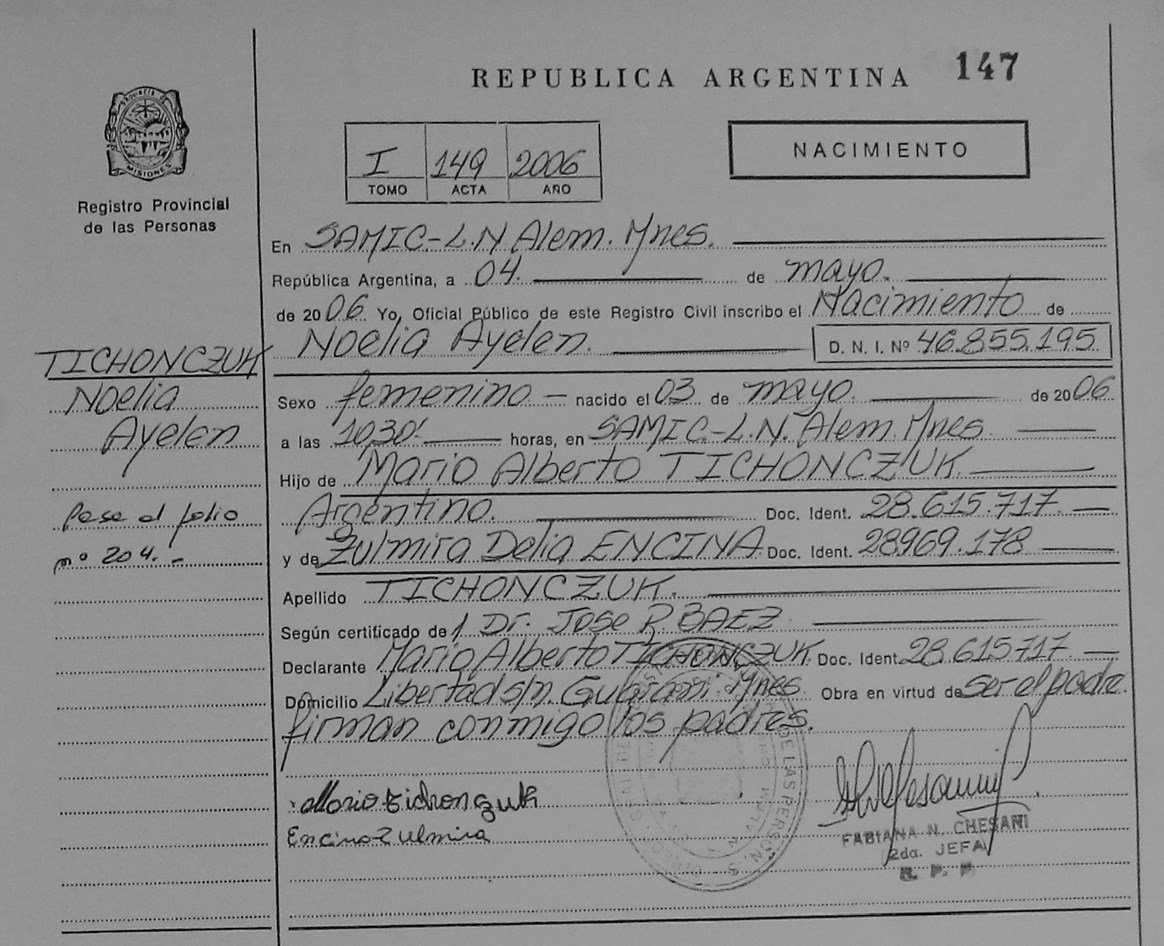 REPUBLICA ARGENTINA 147
PROVINCIA DE MISIONES
Registro Provincial
de las Personas
I 149 2006
TOMO ACTA AÑO
NACIMIENTO
En SAMIC-L.N. Alem. Mnes.
República Argentina, a 04 de mayo.
de 2006 Yo, Oficial Público de este Registro Civil inscribo el Nacimiento de
Noelia Ayelen. D. N. I. Nº 46.855.195
TICHONCZUK
Noelia
Ayelen
Pase al folio
nº 204. -
Sexo femenino — nacido el 03 de mayo. de 2006
a las 10,30! horas, en SAMIC.-L.N. Alem. Mnes.
Hijo de Mario Alberto TICHONCZUK.
Argentino. Doc. Ident. 28.615.717
y de Zulmira Delia ENCINA Doc. Ident. 28969.178
Apellido TICHONCZUK.
Según certificado de Dr. Jose R. BAEZ
Declarante Mario Alberto TICHONCZUK Doc. Ident. 28.615717
Domicilio Libertad s/n. Guarani. Mnes. Obra en virtud de ser el padre.
firman conmigo los padres.
Mario tichonczuk
Encina Zulmira
DE LAS PERSONAS
FABIANA N. CHESANI
2da. JEFA
R. P. P.